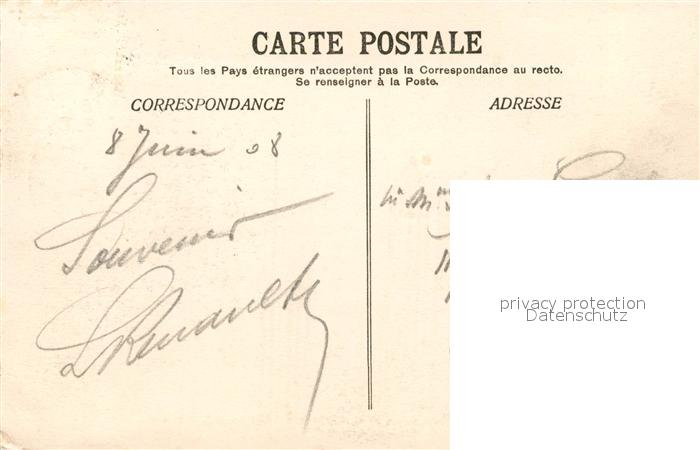 CARTE POSTALE
Tous les Pays étrangers n'acceptent pas la Correspondance au recto.
Se renseigner à la Poste.
CORRESPONDANCE
ADRESSE
8 Juin 08
Souvenir
privacy protection
Datenschutz